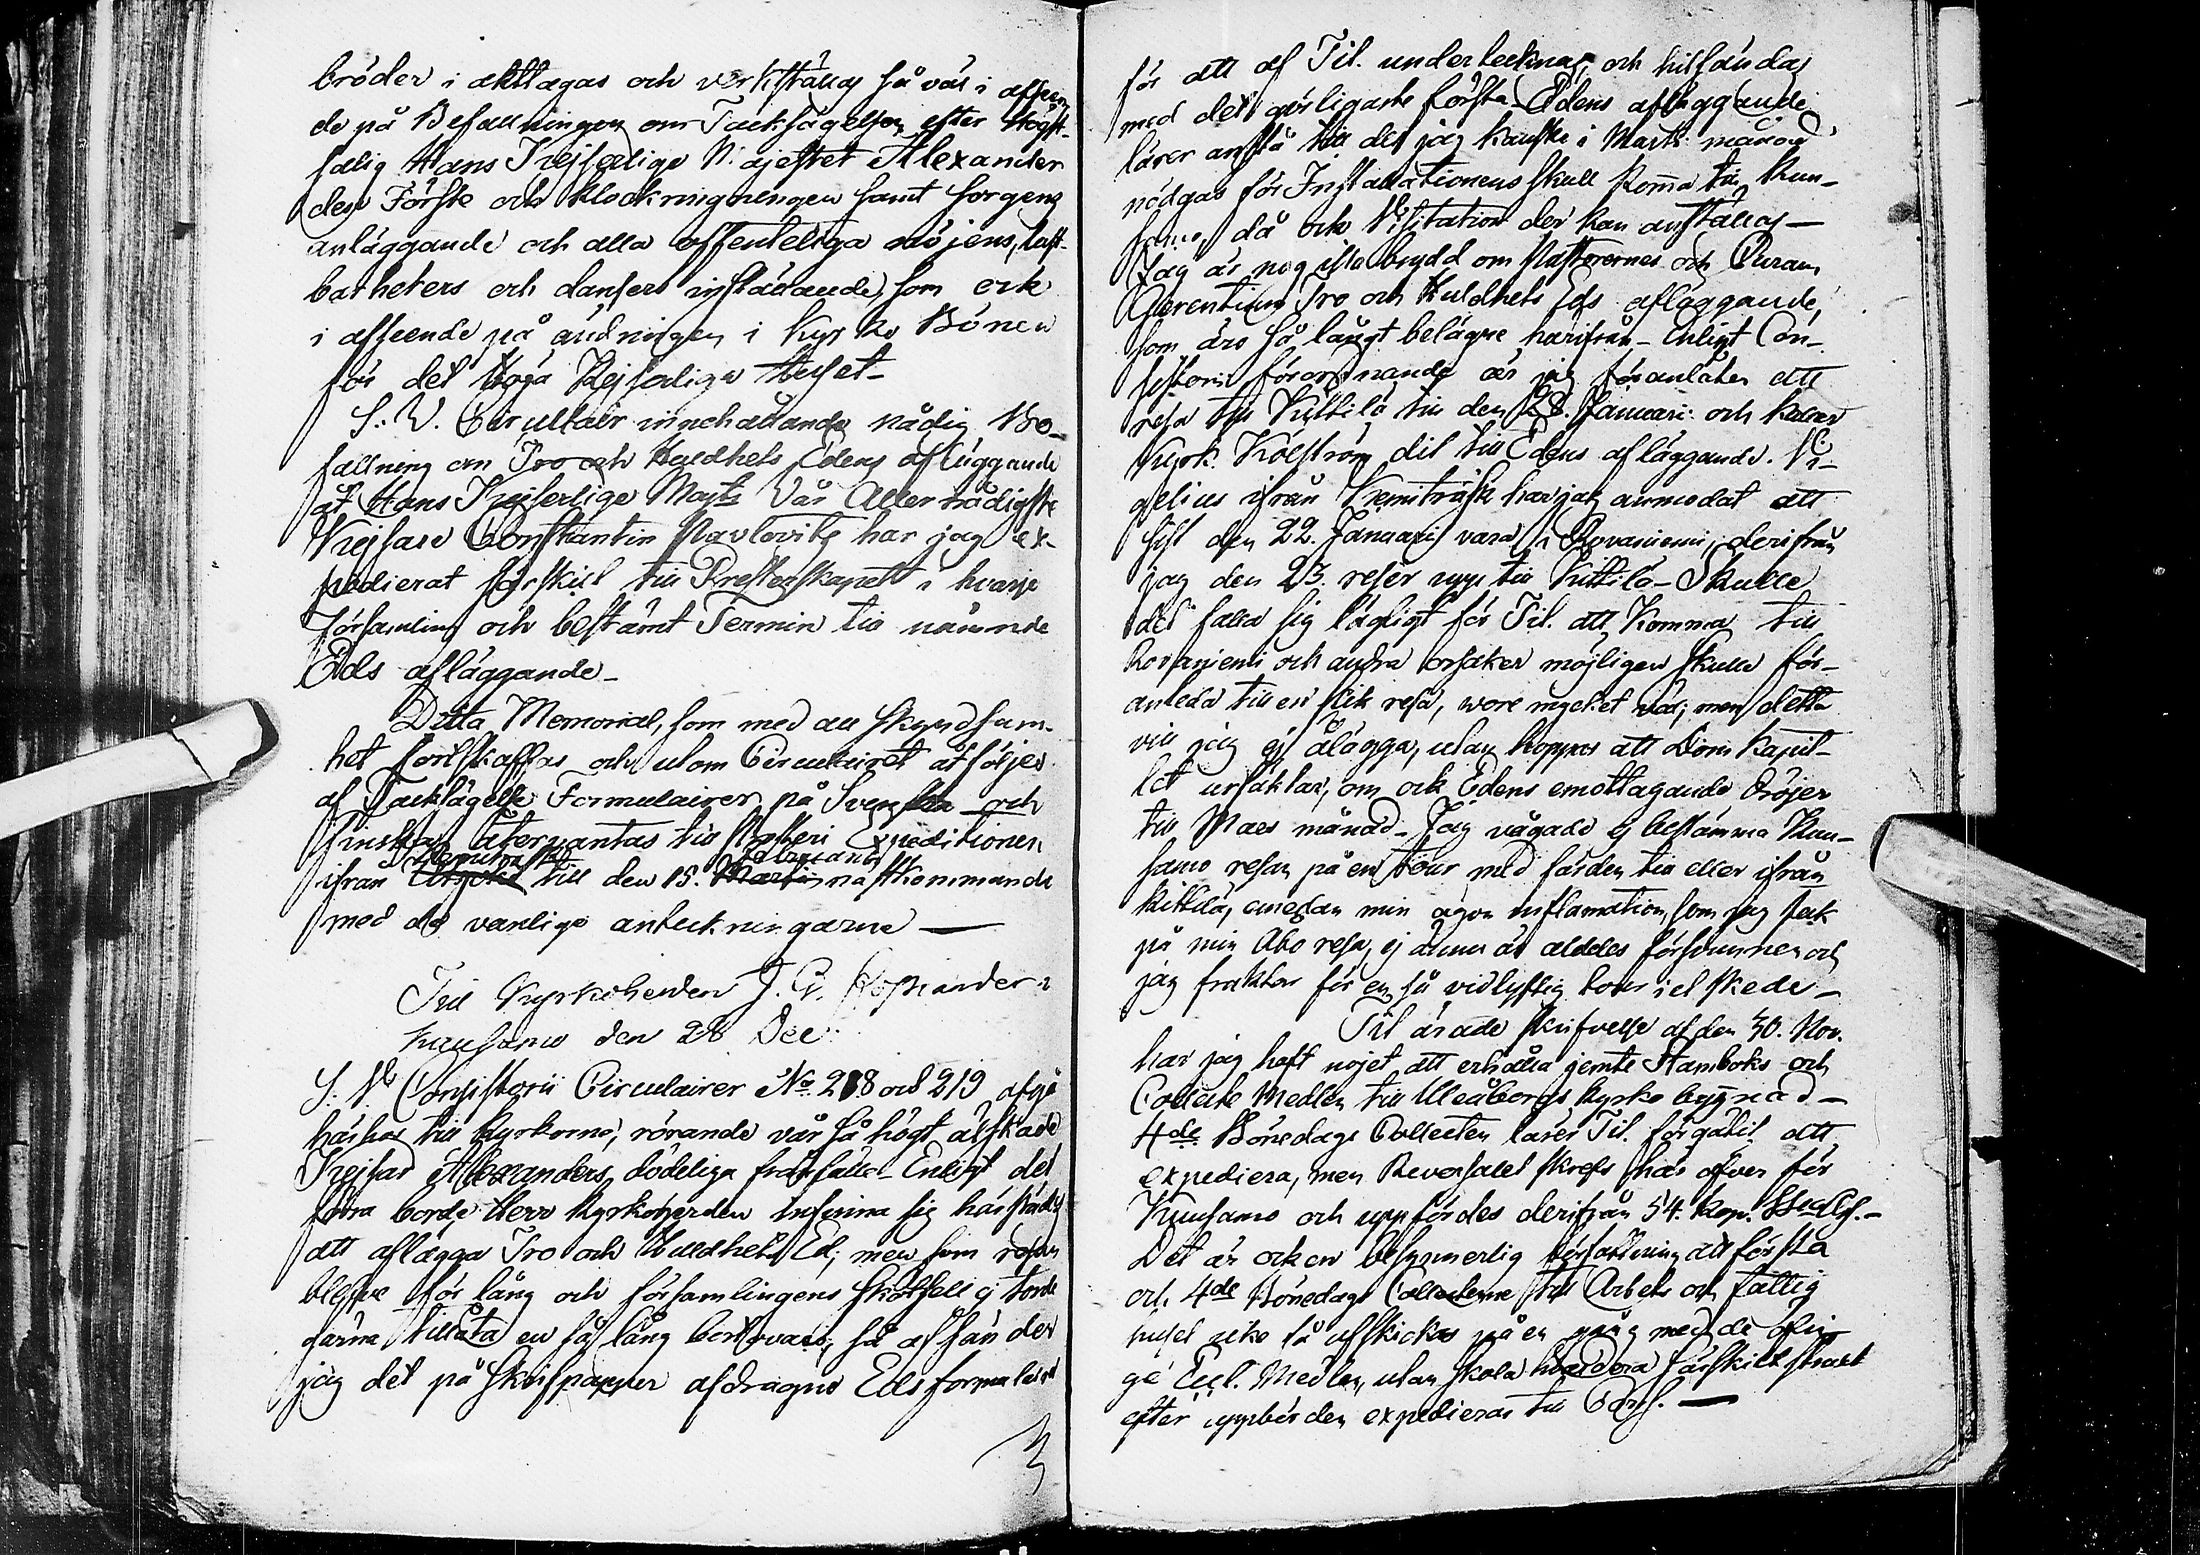 bröder i akttagas och verkställas så väl i afseen
de på Befallningen om Tacksägelsen efter Högst-
salig Hans Kejserlige Majestet Alexander
den Förste och Klockringningen samt sorgens
anläggande och alla offenteliga nöjens, lust-
barheters och dansers inställande, som ock
i afseende på ändringen i Kyrko Bönen
för det Höga Kejserliga Huset_
S. V. Circulair innehållande nådig Be_
fallning om Tro och Huldhets Edens afläggande
åt Hans Kejserlige Majts Vår Allernådigste
Kejsare Constantin Pavlovitz har jag ex-
pedierat särskilt till Presterskapet i hvarje
Församling och bestämt Termin till nämnde
Eds afläggande_
Detta Memorial, som med all skyndsam-
het fortskaffas och utom Circulairet åtföljes
af Tacksägelse Formulairer på Svenska och
Finska återväntas till Probsteri Expeditionen
ifrån till den 15. Februarii nästkommande
med de vanlige anteckningarne —
Till Kyrkoherden J. G. i
Kuusamo den 28 Dec:
S. V. Consistorii Circulairer No 218 och 219 afgå
härhos till Kyrkorne, rörande vår så högt älskade
Kejsar Alexanders dödeliga frånfälle_ Enligt det
förra borde Herr Kyrkoherden infinna sig härstädes
att aflägga Tro och Huldhets Ed; men som resan
blefve för lång och församlingens skötsell ej torde
gärna tillåta en så lång bortovaro, så afsänder
jag det på skrifpapper afdragne Edsformuläret
för att af Til. undertecknas och hitsändas
med det görligaste första_ Edens afläggande
lärer anstå till dess jag kanske i Martii månad
nödgas för Installationens skull komma till Kuu-
samo, då ock Visitation der kan anställas —
Jag är nog illa brydd om Pastorernes och Curam
Gerentium Tro och Huldhets Eds afläggande,
som äro så långt belägne härifrån_ Enligt Con-
sistorii förordnande är jag föranlåten att
resa till Kittilä till den 28. Januari och kallar
Kyrk. Kolström dit till Edens afläggande. Vi-
gelius ifrån Kemiträsk har jag anmodat att
sist den 22. Januarii vara i Rovaniemi, derifrån
jag den 23. reser upp till Kittilä_ Skulle
det falla sig lägligt för Til. att komma till
Rovaniemi och andra orsaker möjligen skulle för-
anleda till en slik resa, wore mycket väl; men detta
vill jag ej ålägga, utan hoppas att Dom Kapit-
let ursäktar, om ock Edens emottagande dröjer
till Mars månad_ Jag vågade ej bestämma Kuu-
samo resan på en tour med färden till eller ifrån
Kittilä, emedan min ögon inflamation, som jag fick
på min Åbo resa, ej ännu är alldeles försvunnen och
jag fruktar för en så vidlyftig tour i et skede_
Til ärade skrifvelse af den 30. Nov.
har jag haft nöjet att erhålla jemte Stamboks och
Collecte Medlen till Uleåborgs Kyrko byggnad —
4de Bönedags Collecten lärer Til. förgätit att
expediera, men Reversalet skrefs här äfven för
Kuusamo och uppfördes derifrån 54. Kop.
Det är ock en bekymmerlig författning att första
och 4de Bönedags Collecterne till Arbets och fattig
huset icke få afskickas på en gång med de öfri-
ge Eccl. Medlen, utan skola hvardera särskilt strax
efter uppbörden expedieras till Cons. —